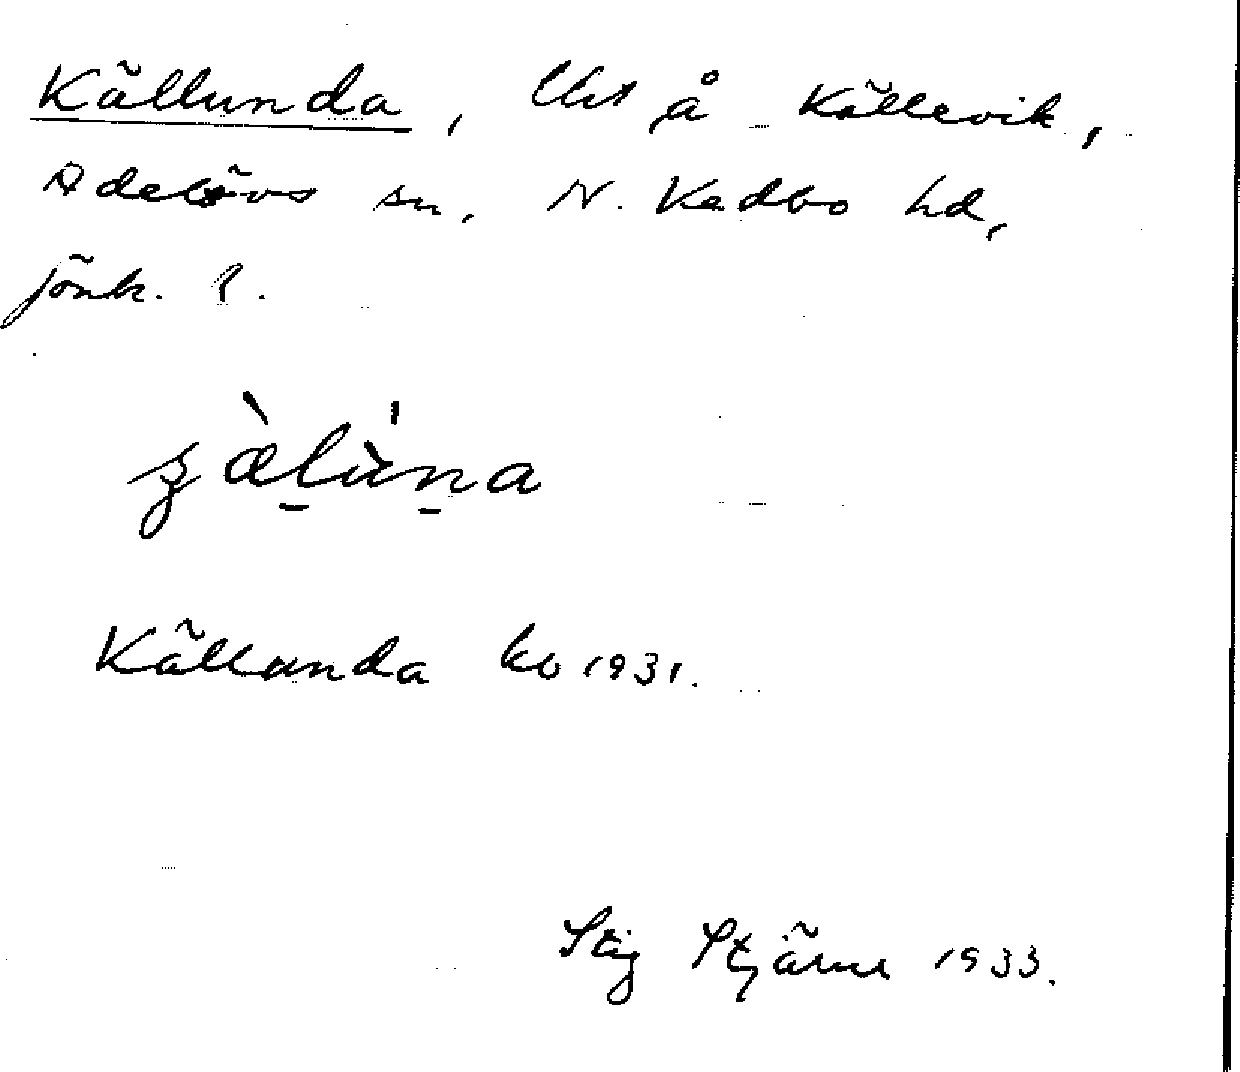 Källunda, Uts å Källevik,
Adelövs sn, N. Vedbo hd,
Jönk. l.
Källunda ko 1931.
Stig Stjärne 1933.